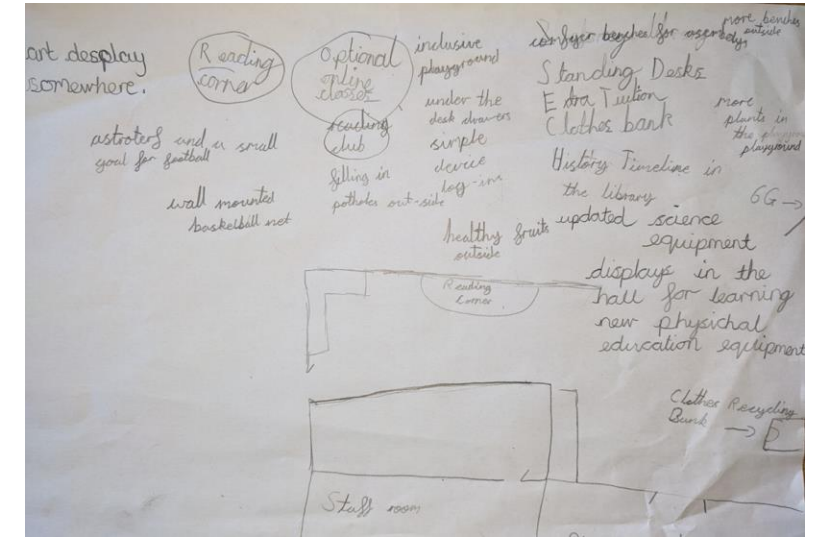 art desplay
somewhere.
Reading
corner
Optional
online
classes
reading
club
filling in
potholes out-side
astroterf and a small
goal for football
wall mounted
basketball net
inclusive
playground
under the
desk drawers
simple
device
log-ins
healthy fruits
outside
more benches
outside
Standing Desks
Extra Tuition
Clothes bank
more
plants in
the
playground
History Timeline in
the library
6G
updated science
equipment
displays in the
hall for learning
new physichal
education equipment
Reading
Corner
Clothes Recycling
Bank
Staff room